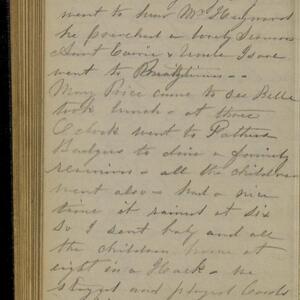 went to hear Mr Haywood
he preached a lovely sermon
Aunt Carrie & Uncle Isaac
went to
Mary Price came to see Belle
took lunch - at three
O clock went to Father
Badgers to dine a family
reunion - all the children
went also - had a nice
time it rained at six
so I sent baby and all
the children home at
eight in a Hack - we
stayed and played Cards